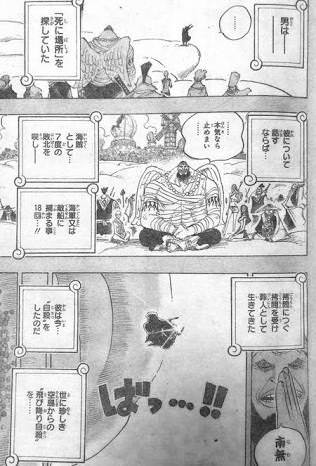 男は──
……
「死に場所」を
探していた
彼について
話す
ならば…
……
本気なら
止めまい
海賊
として…
7度の
敗北を
喫し
海軍又は
敵船に
捕まる事
18回…!!
拷問につぐ
拷問を受け
罪人として
生きてきた
南無
彼は今…
“自殺”を
したのだ
ばっ…!!
世に珍しき
空島からの
“飛び降り自殺”
を……